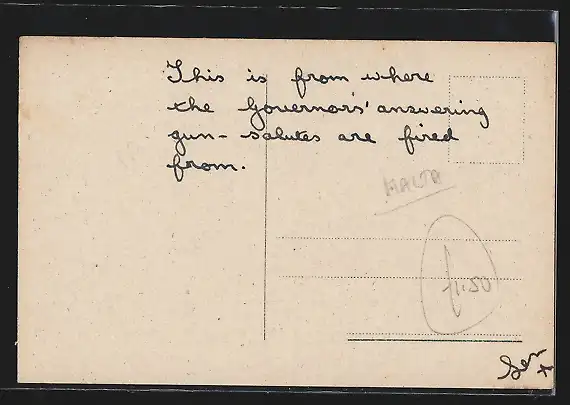 This is from where
the Governors' answering
gun- salutes are fired
from.
MALTA
£1.50